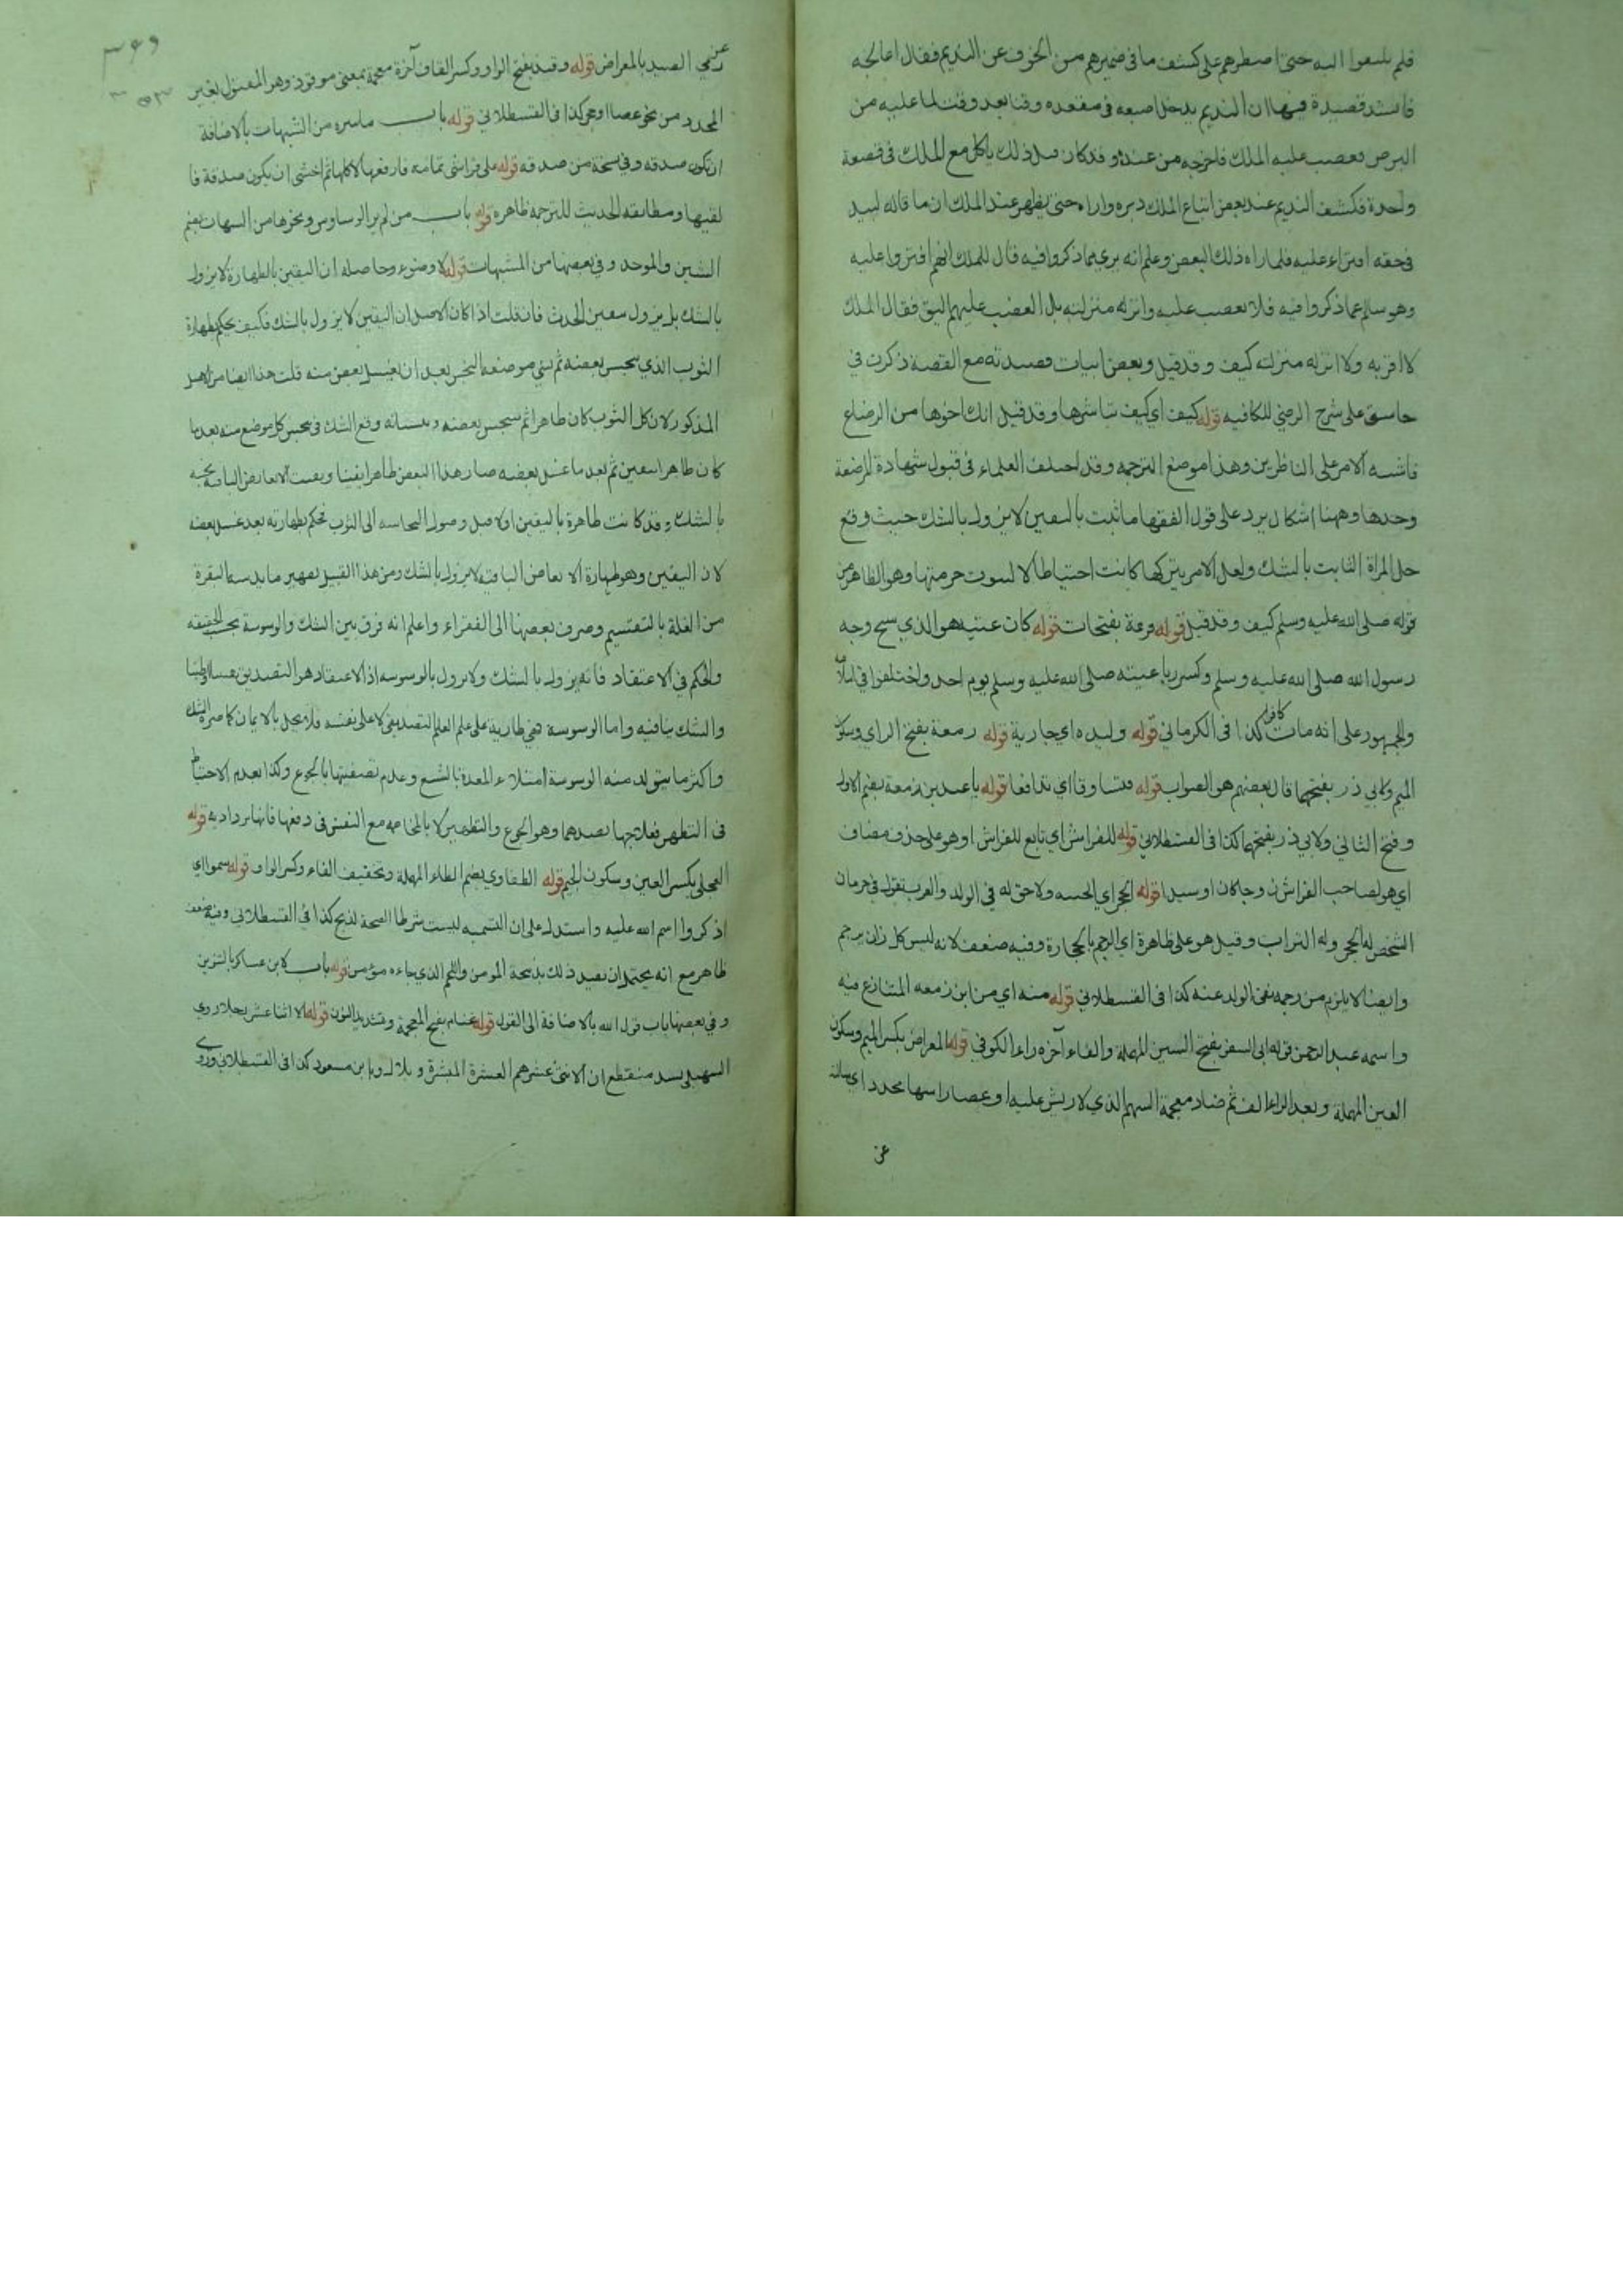 فلم يلتفوا اليه حتى اضطرهم على كشف ما فى ضميرهم من الخوف عن النديم فقال اعالجه
فانشد قصيدة فيها ان النديم يدخل اصبعه فى مقعده وقتا بعد وقت لما عليه من
البرص فغضب عليه الملك فاخرجه من عنده وقد كان قبل ذلك ياكل مع الملك فى قصعة
واحدة فكشف النديم عند بعض اتباع الملك دبره واراه حتى يظهر عند الملك ان ما قاله لبيد
فى حقه افتراء عليه فلما راه ذلك البعض وعلم انه برى مما ذكروا فيه قال للملك انهم افتروا عليه
وهو سالم عما ذكروا فيه فلا تغضب عليه وانزله منزلته بل الغضب عليهم اليق فقال الملك
لا اقربه ولا انزله منزلته كيف وقد قيل وبعض ابيات قصيدته مع القصة ذكرت في
على شرح الرضي للكافيه قوله كيف اي كيف تباشرها وقد قيل انك اخوها من الرضاع
فاشبه الامر على الناظرين وهذا موضع الترجمه وقد اختلف العلماء فى قبول شهادة المرضعة
وحدها وههنا اشكال يرد على قول الفقها ما ثبت باليقين لا يزول بالشك حيث وقع
حل المراة الثابت بالشك ولعل الامر بتركها كانت احتياطا لا لثبوت حرمتها وهو الظاهر من
قوله صلى الله عليه وسلم كيف وقد قيل قوله زمعة بفتحات قوله كان عتبه هو الذي شج وجه
رسول الله صلى الله عليه وسلم وكسر رباعيته صلى الله عليه وسلم يوم احد واختلفوا فى اسلامه
والجمهور على انه مات كافرا كذا فى الكرماني قوله وليده اي جارية قوله زمعة بفتح الزاي وسكون
الميم ولابي ذر بفتحها قال بعضهم هو الصواب قوله فتساوقا اي تدافعا قوله يا عبد بن زمعة بضم الاول
وفتح الثاني ولابي ذر بفتحهما كذا فى القسطلاني قوله للفراش اي تابع للفراش او هو على حذف مضاف
اي هو لصاحب الفراش زوجا كان او سيدا قوله الحجر اي الخيبه ولا حق له في الولد والعرب تقول في حرمان
الشخص له الحجر وله التراب وقيل هو على ظاهرة اي الرجم بالحجارة وفيه ضعف لانه ليس كل زان يرجم
وايضا لا يلزم من رجمه نفى الولد عنه كذا فى القسطلاني قوله منه اي من ابن زمعه المتنازع فيه
واسمه عبد الرحمن قوله ابى السفر بفتح السين المهملة والفاء آخره راء الكوفي قوله المعراض بكسر الميم وسكون
العين المهملة وبعد الراء الف ثم ضاد معجمة السهم الذي لا ريش عليه او عصا راسها محدد اي ساله
عن
٣٦٩
٣٥٣
عن رمي الصيد بالمعراض قوله وقيذ بفتح الواو وكسر القاف آخرة معجمة بمعنى موقوذ وهو المقتول بغير
المحدد من نحو عصا او حجر كذا فى القسطلاني قوله باب ما يتنزه من الشبهات بالاضافة
ان تكون صدقه وفي نسخة من صدقه قوله على فراشى تمامه فارفعها لاكلها ثم اخشى ان يكون صدقة فا
لقيها ومطابقه الحديث للترجمه ظاهره قوله باب من لم ير الوساوس ونحوها من الشبهات بضم
الشين والموحده وفي بعضها من المشبهات قوله لا وضوء وحاصله ان اليقين بالطهارة لا يزول
بالشك بل يزول بيقين الحدث فان قلت اذا كان الاصل ان اليقين لا يزول بالشك فكيف يحكم بطهارة
الثوب الذي ينجس بعضه ثم نسي موضعه النجس بعد ان يغسل بعض منه قلت هذا ايضا من الاصل
المذكور لان كل الثوب كان طاهرا ثم بنجس بعضه ونسيانه وقع الشك فى نجس كل موضع منه بعد ما
كان طاهرا بيقين ثم بعد ما غسل بعضه صار هذا البعض طاهرا يقينا وبقيت الابعاض الباقية نجسه
بالشك وقد كانت طاهرة باليقين اولا قبل وصول النجاسه الى الثوب فحكم بطهارته بعد غسل بعضه
لان اليقين وهو طهارة الابعاض الباقيه لا يزول بالشك ومن هذا القبيل تطهير ما يدسه البقرة
من الغلة بالتقسيم وصرف بعضها الى الفقراء واعلم انه فرق بين الشك والوسوسة بحسب الحقيقه
والحكم في الاعتقاد فانه يزول بالشك ولا يزول بالوسوسه اذ الاعتقاد هو التصديق
والشك ينافيه واما الوسوسة فهي طارية على علم العلم التصديقى لا على نفسه فلا يخل بالايمان كما ضره الشك
واكثر ما يتولد منه الوسوسة امتلاء المعدة بالشبع وعدم تصفيتها بالجوع وكذا بعدم الاحتياط
فى التطهر فعلاجها بضدهما وهو الجوع والتطهير لا بالمخاصمه مع النفس فى دفعها فانها يزداد به قوله
العجلى بكسر العين وسكون الجيم قوله الطفاوي بضم الطاء المهملة وتخفيف الفاء وكسر الواو قوله سموا اي
اذكروا اسم الله عليه واستدل على ان التسميه ليست شرطا لصحة لذبح كذا في القسطلاني وفيه ضعف
ظاهر مع انه يحتمل ان يفيد ذلك بذبحة المؤمن واللحم الذي جاءه مؤمن قوله باب لابن عساكر بالتنوين
وفي بعضها باب قول الله بالاضافة الى القول قوله غنام بفتح المعجمة وتشديد النون قوله الا اثنا عشر رجلا روي
السهيلى بسند منقطع ان الاثنى عشر هم العشرة المبشرة وبلال وابن مسعود كذا فى القسطلاني وروي